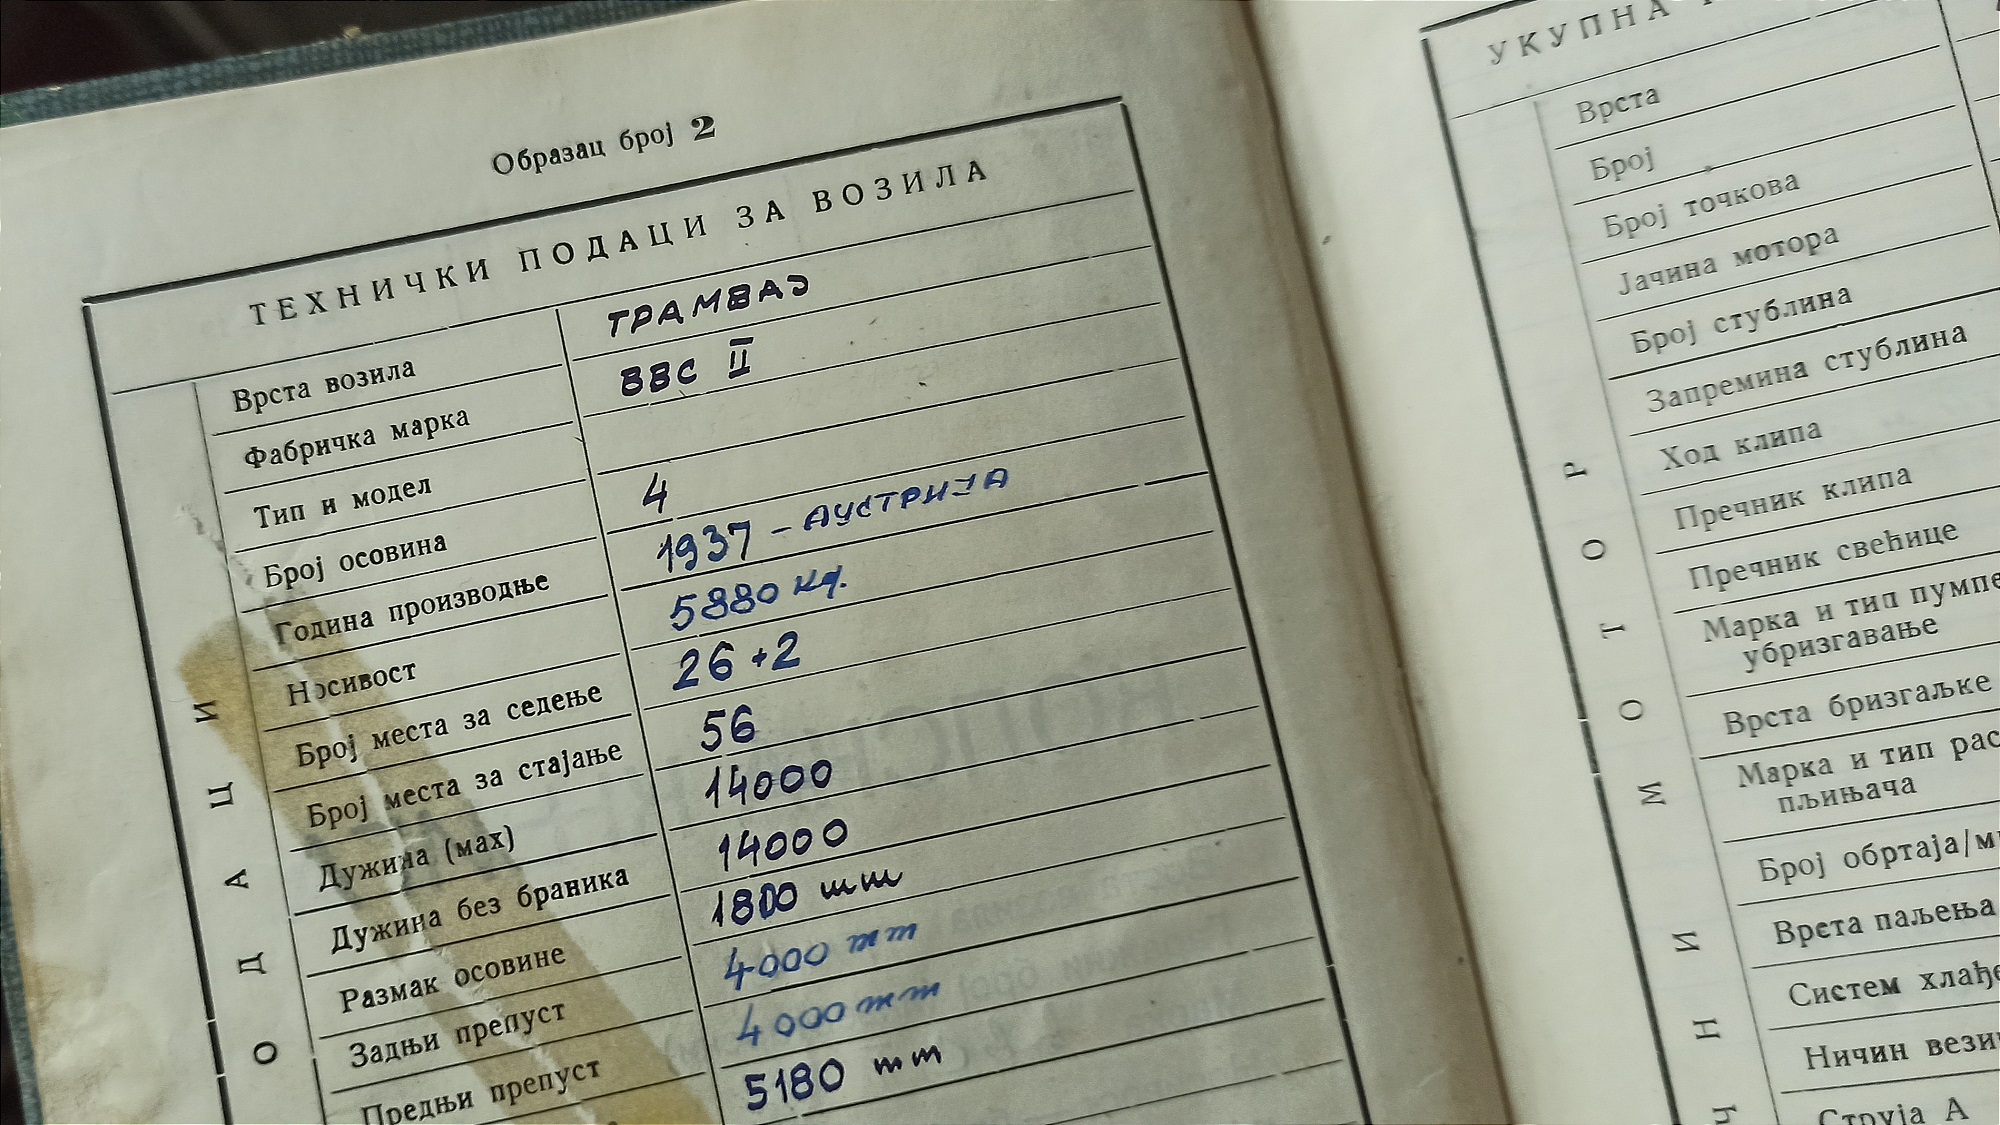 Образац број 2
ТЕХНИЧКИ ПОДАЦИ ЗА ВОЗИЛА
Врста возила ТРАМВАЈ
Фабричка марка ВВС II
Тип и модел
Број осовина 4
Година производње 1937 - АУСТРИЈА
Носивост 5880 кг.
Број места за седење 26+2
Број места за стајање 56
Дужина (мах) 14000
Дужина без браника 14000
Размак осовине 1800 mm
Задњи препуст 4000 mm
Предњи препуст 4000 mm
5180 mm
ОДАЦИ
УКУПНА
Врста
Број
Број точкова
Јачина мотора
Број стублина
Запремина стублина
Ход клипа
Пречник клипа
Пречник свећице
Марка и тип пумпе
убризгавање
Врста бризгаљке
Марка и тип рас
пљињача
Број обртаја/м
Врста паљења
Систем хлађе
Ничин вези
Струја А
МОТОР
НИ